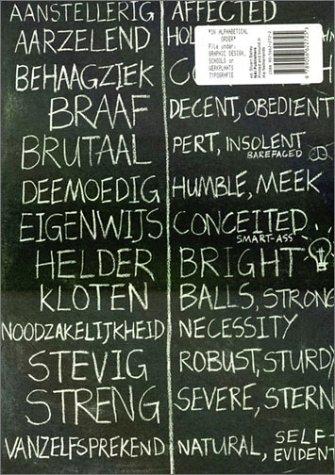 AANSTELLERIG AFFECTED
AARZELEND
BEHAAGZIEK
BRAAF DECENT, OBEDIENT
BRUTAAL PERT, INSOLENT
BAREFACED
DEEMOEDIG HUMBLE, MEEK
EIGENWIJS CONCEITED
SMART-ASS
HELDER BRIGHT
KLOTEN BALLS, STRONG
NOODZAKELIJKHEID NECESSITY
STEVIG ROBUST, STURD
STRENG SEVERE, STERN
VANZELFSPREKEND NATURAL, SELF-
EVIDENT
"IN ALPHABETICAL
ORDER"
File under:
GRAPHIC DESIGN,
SCHOOLS or
WERKPLAATS
TYPOGRAFIE